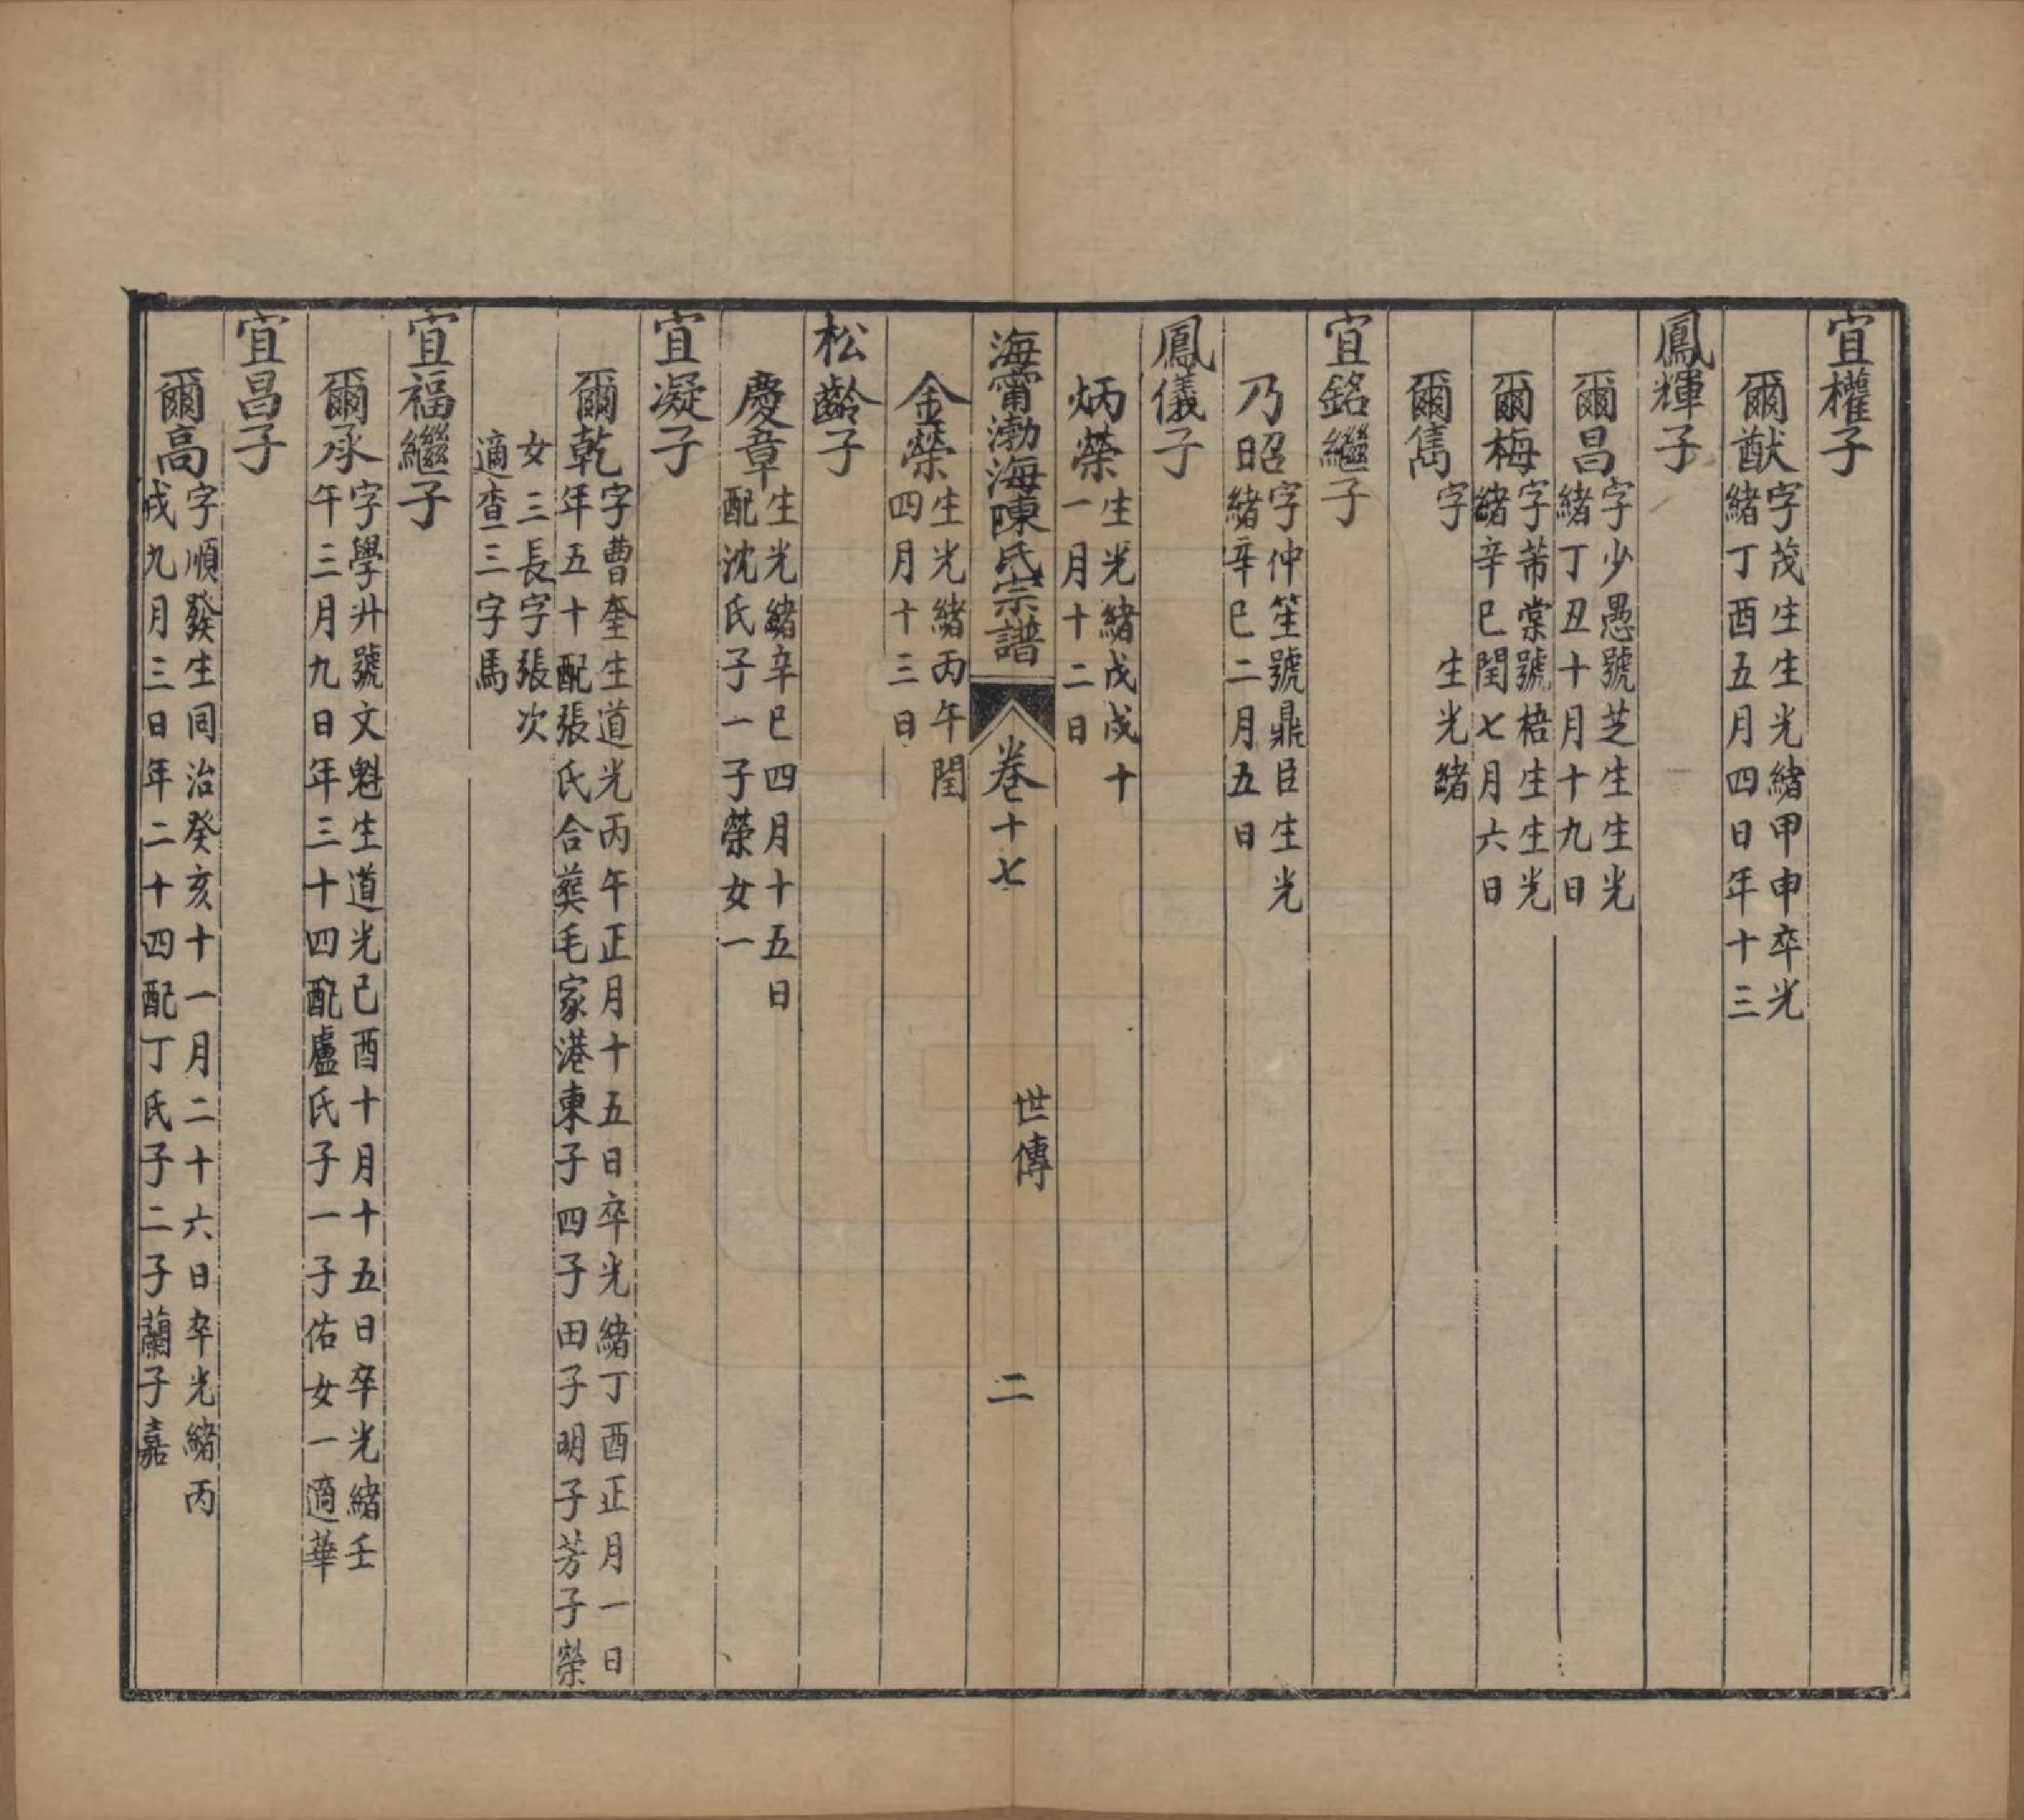 宜權子
爾猷
字茂生生光緒甲申卒光
緒丁酉五月四日年十三
鳳輝子
爾昌
字少愚號芝生生光
緒丁丑十月十九日
爾梅
字芾棠號梧生生光
緒辛巳閏七月六日
爾雋
字　　生光緒
宜銘繼子
乃昭
字仲笙號鼎臣生光
緒辛巳二月五日
鳳儀子
炳榮
生光緒戊戌十
一月十二日
海甯渤海陳氏宗譜　卷十七　世傳　二
金榮
生光緒丙午閏
四月十三日
松齡子
慶章
生光緒辛巳四月十五日
配沈氏子一子榮女一
宜凝子
爾乾
字曹奎生道光丙午正月十五日卒光緒丁酉正月一日
年五十配張氏合葬毛家港東子四子田子明子芳子榮
女三長字張次
適查三字馬
宜福繼子
爾承
字學升號文魁生道光己酉十月十五日卒光緒壬
午三月九日年三十四配盧氏子一子佑女一適華
宜昌子
爾高
字順發生同治癸亥十一月二十六日卒光緒丙
戌九月三日年二十四配丁氏子二子蘭子嘉